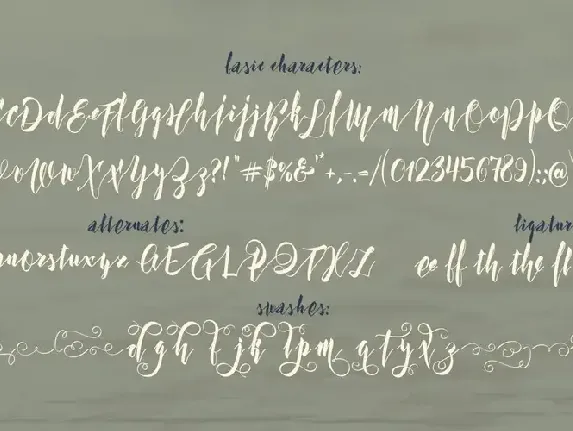 basic characters:
cDdEeFfGgHhIiJjKkLlMmNnOoPpQ
vWwXxYyZz?!"#$%&'*+,-.=/(0123456789):;@
alternates: ligatur
norstuxyz AEGLPQTXZ ee ff th the fl
swashes:
dgh tjk lpm qtyxz